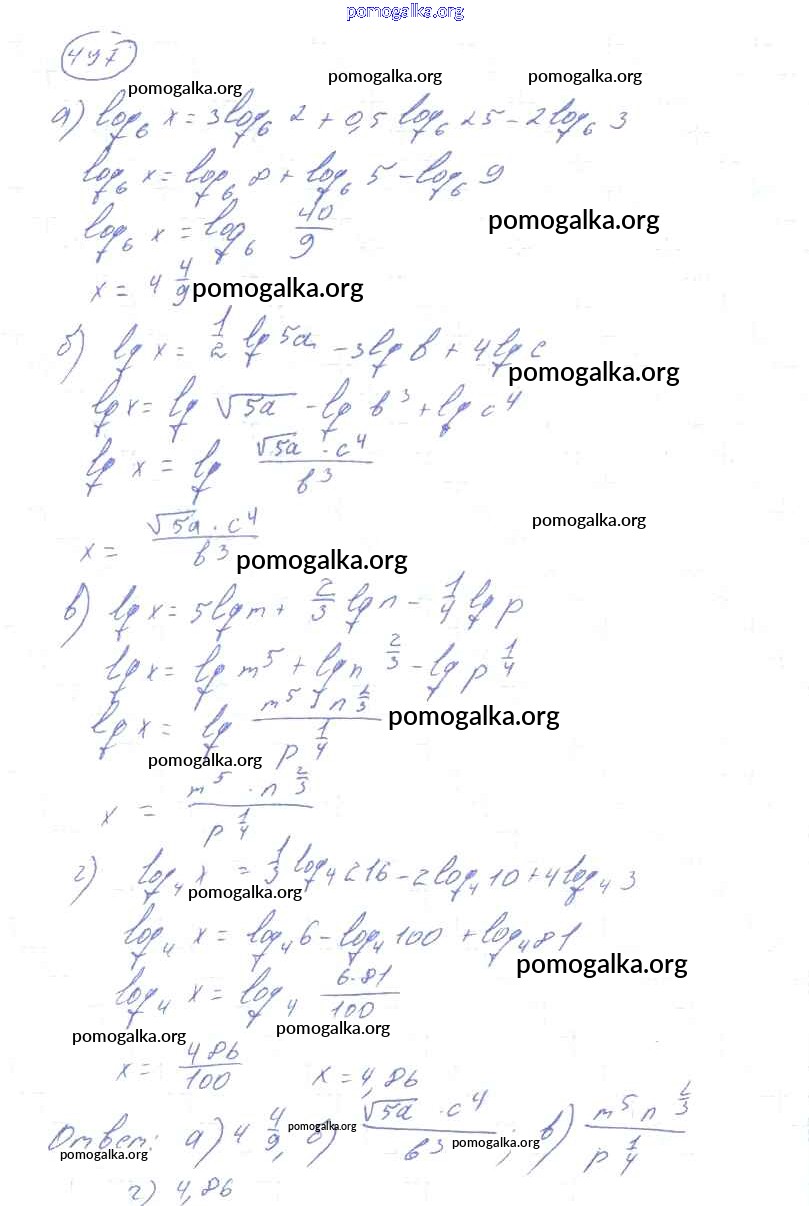 pomogalka.org
497
pomogalka.org pomogalka.org pomogalka.org
а) log₆ x = 3log₆ 2 + 0,5 log₆ 25 - 2log₆ 3
log₆ x = log₆ 8 + log₆ 5 - log₆ 9
log₆ x = log₆ 40/9 pomogalka.org
x = 4 4/9 pomogalka.org
б) lg x = 1/2 lg 5a - 3lg b + 4lg c
pomogalka.org
lg x = lg √5a - lg b³ + lg c⁴
lg x = lg √5a · c⁴ / b³
pomogalka.org
x = √5a · c⁴ / b³ pomogalka.org
в) lg x = 5lg m + 2/3 lg n - 1/4 lg p
lg x = lg m⁵ + lg n^(2/3) - lg p^(1/4)
lg x = lg m⁵ · n^(2/3) / p^(1/4) pomogalka.org
pomogalka.org
x = m⁵ · n^(2/3) / p^(1/4)
г) log₄ x = 1/3 log₄ 216 - 2log₄ 10 + 4log₄ 3
pomogalka.org
log₄ x = log₄ 6 - log₄ 100 + log₄ 81
pomogalka.org
log₄ x = log₄ 6·81/100
pomogalka.org pomogalka.org
x = 486/100 x = 4,86
Ответ: а) 4 4/9, б) √5a · c⁴ / b³; в) m⁵ n^(2/3) / p^(1/4)
pomogalka.org pomogalka.org pomogalka.org
г) 4,86